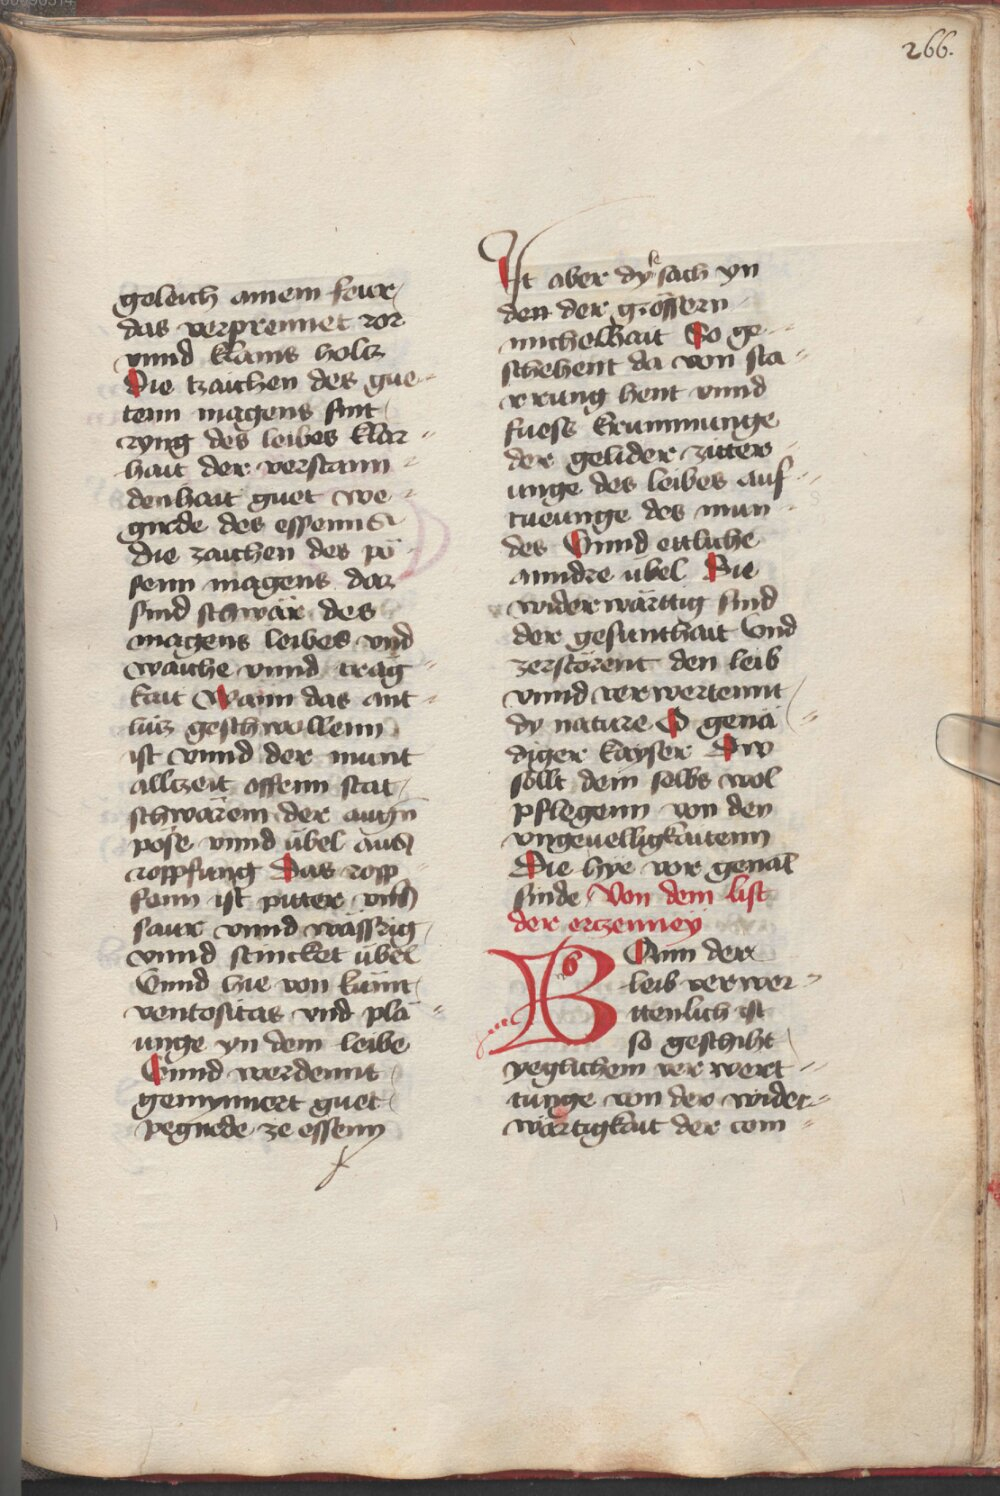 266.
geleich ainem feur
das verprennet ror
vnnd klains holtz
Die tzaichen des gue
tenn magens sint
ryng des leibes klar
hait der verstann
denhait guet we
girde des essenns
die zaichen des pö
senn magens daz
sind schwär des
magens leibes vnd
waiche vnnd träg
kait Wann das ant
lütz geschwollenn
ist vnnd der munt
allzeit offenn stat
schwärem der augn̄
pöse vnnd übel aus
roppfung Das ropp
fenn ist pitter vnd
saur vnnd wässrig
vnnd stincket übel
Vnnd hie von kumt
ventositas vnd plä
unge yn dem leibe
Vnnd werdennt
gemynnert guet
pegirde ze essenn
Ist aber dy sach yn
den der grössern
michelhait So ge
schehent da von sta
rrung hent vnnd
fuess krummunge
der gelider zitter
unge des leibes auf
tueunge des mun
des Vnnd ettliche
anndre übel Die
widerwärttig sind
der gesunthait Vnd
zerstörent den leib
vnnd verwertennt
dy nature O genä
diger kayser Dw
sollt dein selbs wol
pflegenn von den
vngeuelligkaitenn
Die hye vor genāt
sinde Von dem list
der ertzenney
Wann der
leib verwer
ttenlich ist
so geschiht
yeglichem verwert
tunge von der wider
wärtigkait der com